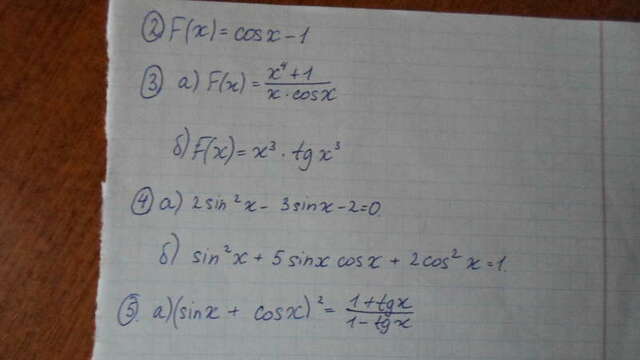 ② F(x) = cosx - 1
③ а) F(x) = (x⁴ + 1) / (x · cosx)
б) F(x) = x³ · tg x³
④ а) 2 sin²x - 3 sinx - 2 = 0
б) sin²x + 5 sinx cosx + 2 cos²x = 1.
⑤. а) (sinx + cosx)² = (1 + tgx) / (1 - tgx)